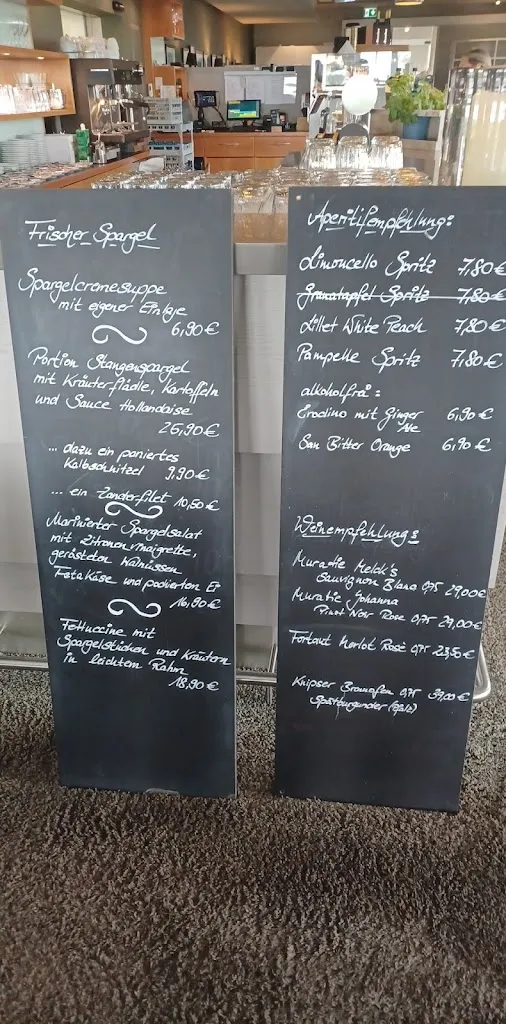 Frischer Spargel
Spargelcremesuppe
mit eigener Einlage
6,90 €
Portion Stangenspargel
mit Kräuterflädle, Kartoffeln
und Sauce Hollandaise
26,90 €
... dazu ein paniertes
Kalbschnitzel 9,90 €
... ein Zanderfilet 10,50 €
Marinierter Spargelsalat
mit Zitronenvinaigrette,
gerösteten Walnüssen
Fetakäse und pochierten Ei
16,90 €
Fettuccine mit
Spargelstücken und Kräutern
in leichtem Rahm
18,90 €
Aperitifempfehlung:
Limoncello Spritz 7,80 €
Granatapfel Spritz 7,80 €
Lillet White Peach 7,80 €
Pampelle Spritz 7,80 €
alkoholfrei:
Crodino mit Ginger 6,90 €
Ale
San Bitter Orange 6,90 €
Weinempfehlung:
Muratie Melck's
Sauvignon Blanc 0,75 29,00 €
Muratie Johanna
Pinot Noir Rose 0,75 29,00 €
Fortant Merlot Rosé 0,75 23,50 €
Knipser 0,75 39,00 €
Spätburgunder (Pfalz)